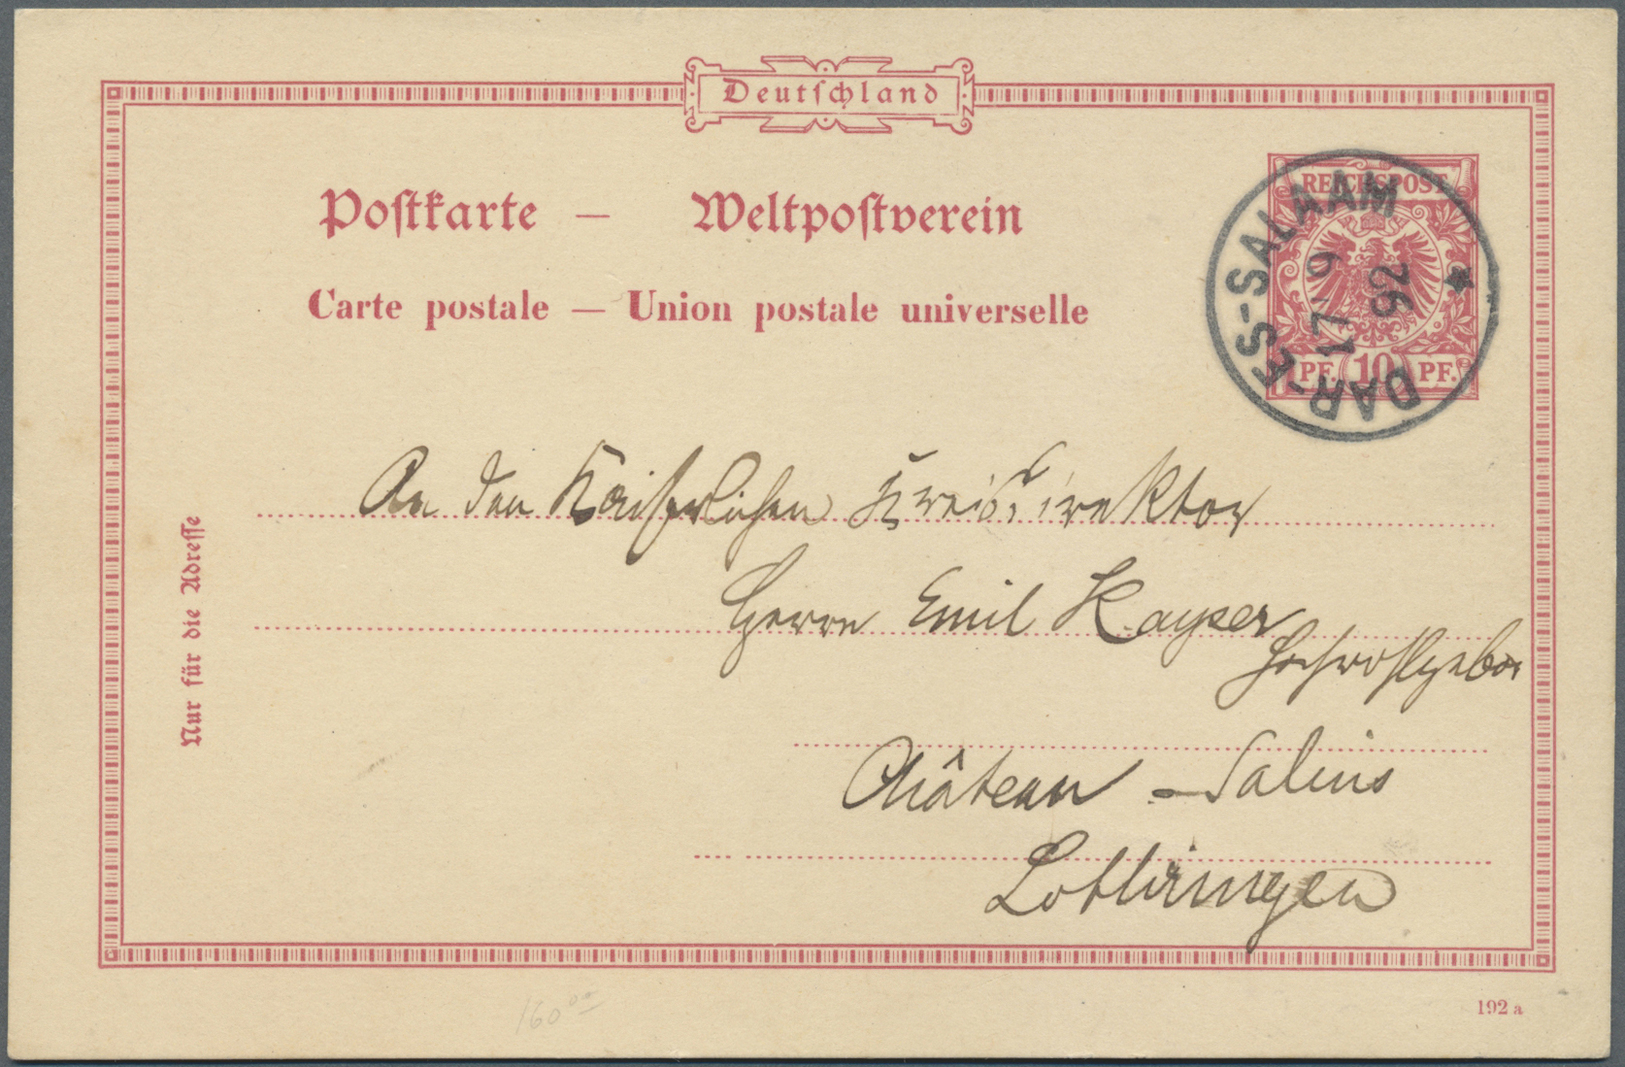 Deutſchland
Poſtkarte — Weltpoſtverein
Carte postale — Union postale universelle
REICHSPOST
PF. 10 PF.
DAR-ES-SALAAM
17/9
92
*
Nur für die Adreſſe
An den Kaiserlichen Kreisdirektor
Herrn Emil Kayser
Hochwohlgebor
Château-Salins
Lothringen
160
192 a